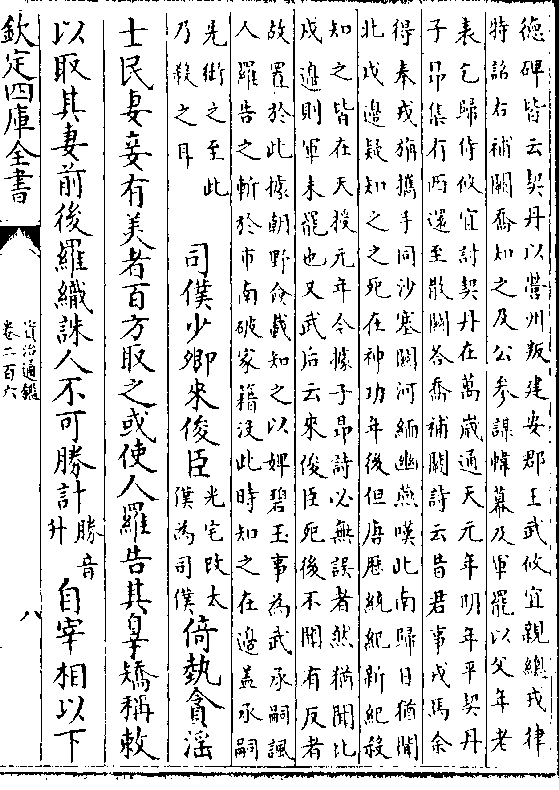 德碑皆云契丹以營州叛建安郡王武攸宜親總戎律
特詔右補闕喬知之及公參謀幃幕及軍罷以父年老
表乞歸侍攸宜討契丹在萬歲通天元年明年平契丹
子昂集有西還至散關答喬補闕詩云昔君事戎馬余
得奉戎旃攜手同沙塞關河緬幽燕嘆此南歸日猶聞
北戍邊疑知之之死在神功年後但唐歷統紀新紀殺
知之皆在天授元年今據子昂詩必無誤者然猶聞北
戍邊則軍未罷也又武后云來俊臣死後不聞有反者
故置於此據朝野僉載知之以婢碧玉事為武承嗣諷
人羅告之斬於市南破家籍沒此時知之在邊蓋承嗣
先銜之至此
乃殺之耳
司僕少卿來俊臣
光宅改太
僕為司僕
倚執貪淫
士民妻妾有美者百方取之或使人羅告其辠矯稱敕
以取其妻前後羅織誅人不可勝計
勝音
升
自宰相以下
欽定四庫全書
資治通鑑
卷二百六
八